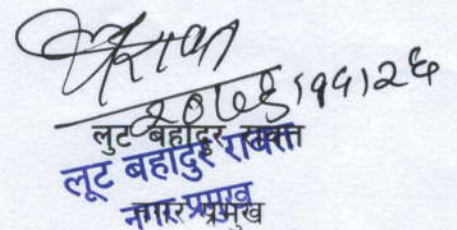 लुट बहादुर रावत
लूट बहादुर रावत
नगर प्रमुख
नगर प्रमुख